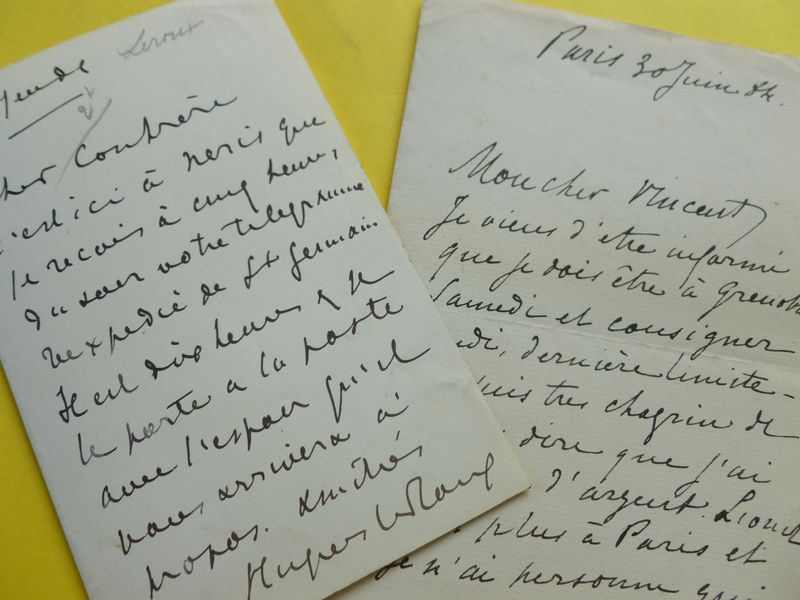 Leroux
Jeudi
Cher Confrère
c'est ici à Neris que
je reçois à cinq heures,
du soir votre telegramme
réexpédié de St Germain
Il est dix heures & je
le porte à la poste
avec l'espoir qu'il
vous arrivera à
propos. Amitiés
Hugues Le Roux
Paris 30 Juin 84.
Mon cher Vincent,
Je viens d'etre informé
que je dois être à Grenob
Samedi et consigner
di, dernière limite-
suis tres chagrin de
dire que j'ai
d'argent. Lionel
plus à Paris et
Je n'ai personne qui